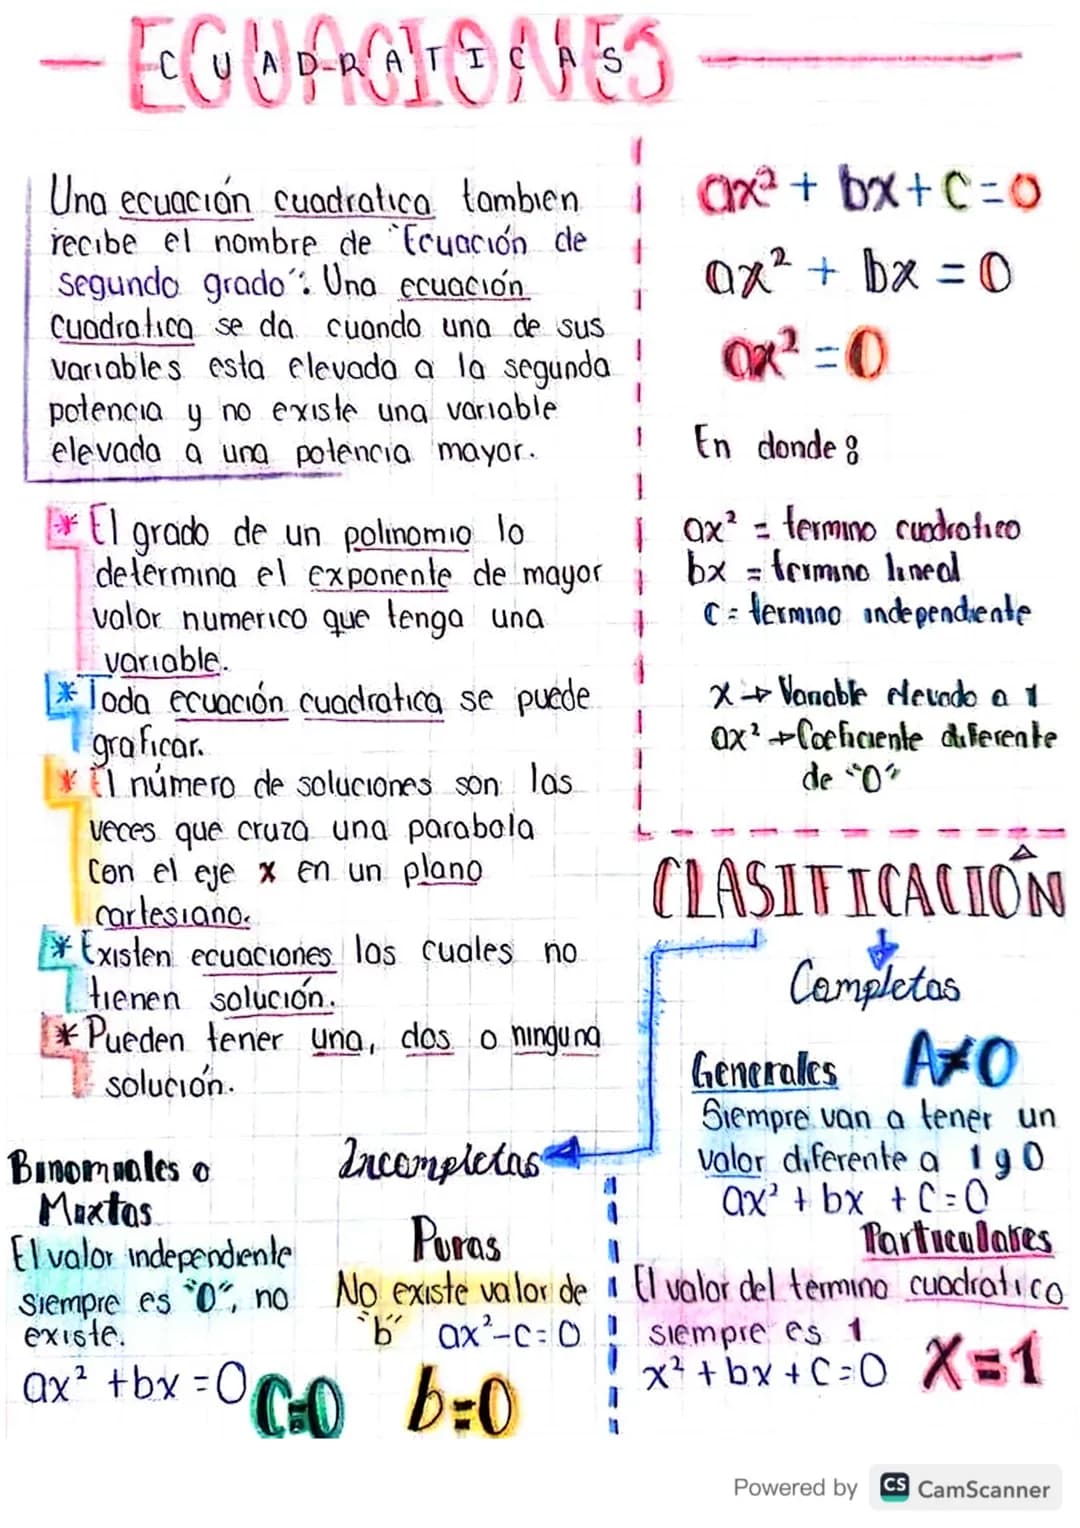 ECUACIONES
CUADRATICAS
Una ecuación cuadratica tambien
recibe el nombre de "Ecuación de
segundo grado". Una ecuación
cuadratica se da cuando una de sus
variables esta elevada a la segunda
potencia y no existe una variable
elevada a una potencia mayor.
* El grado de un polinomio lo
determina el exponente de mayor
valor numerico que tenga una
variable.
* Toda ecuación cuadratica se puede
graficar.
* El número de soluciones son las
veces que cruza una parabola
con el eje x en un plano
cartesiano.
* Existen ecuaciones las cuales no
tienen solución.
* Pueden tener una, dos o ninguna
solución.
ax² + bx + c = 0
ax² + bx = 0
ax² = 0
En donde:
ax² = termino cuadratico
bx = termino lineal
c = termino independiente
x → Variable elevado a 1
ax² → Coeficiente diferente
de "0"
CLASIFICACIÓN
Completas
Generales A≠0
Siempre van a tener un
valor diferente a 1 y 0
ax² + bx + c = 0
Particulares
El valor del termino cuadratico
siempre es 1
x² + bx + c = 0 X=1
Incompletas
Binomiales o
Mixtas
El valor independiente
siempre es "0", no
existe.
ax² + bx = 0 C=0
Puras
No existe valor de
"b" ax²-c=0
b=0
Powered by CS CamScanner